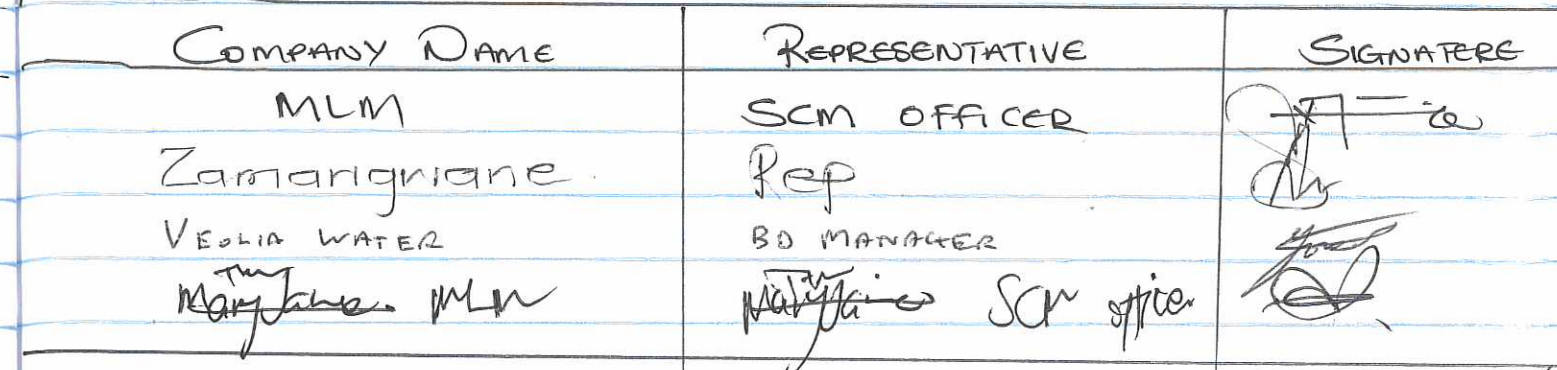 COMPANY NAME REPRESENTATIVE SIGNATERE
MLM SCM OFFICER
Zamangwane Rep
VEOLIA WATER BD MANAGER
MaryJane MLM SCM officer